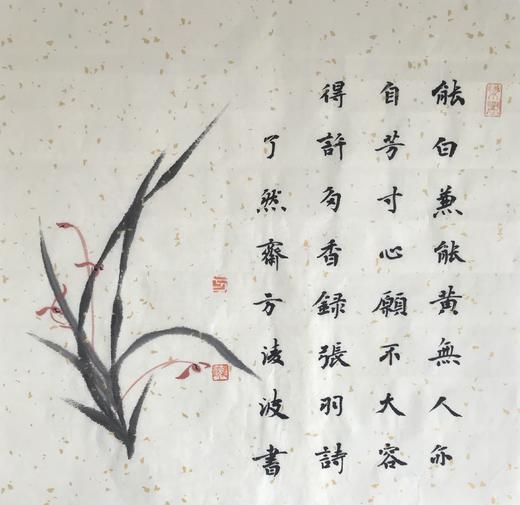 能白兼能黄無人亦
自芳寸心願不大容
得許多香録張羽詩
了然齋方淩波書